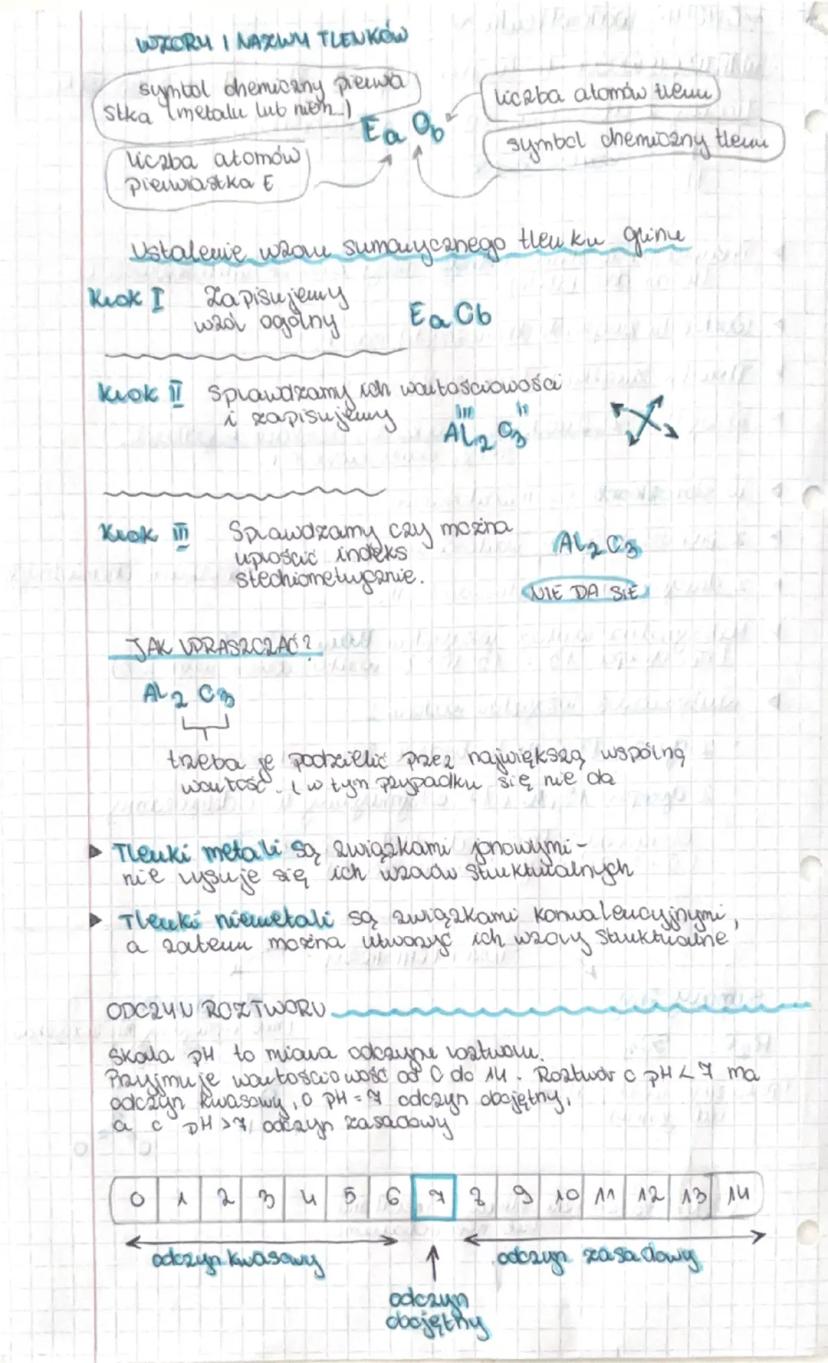 WZORY I NAZWY TLENKÓW
symbol chemiczny pierwia
stka (metalu lub niem.)
liczba atomów tlenu
EaOb
symbol chemiczny tlenu
liczba atomów
pierwiastka E
Ustalenie wzoru sumarycznego tlenku glinu
Krok I Zapisujemy
wzór ogólny
EaOb
Krok II Sprawdzamy ich wartościowości
i zapisujemy
III II
Al2O3
Krok III Sprawdzamy czy można
uprościć indeks
stechiometrycznie.
Al2O3
NIE DA SIĘ
JAK UPRASZCZAĆ?
Al2O3
trzeba je podzielić przez największą wspólną
wartość. (w tym przypadku się nie da
▸ Tlenki metali są związkami jonowymi -
nie rysuje się ich wzorów strukturalnych
▸ Tlenki niemetali są związkami kowalencyjnymi,
a zatem można utworzyć ich wzory strukturalne
ODCZYN ROZTWORU
Skala pH to miara odczynu roztworu.
Przyjmuje wartościowość od 0 do 14. Roztwór o pH < 7 ma
odczyn kwasowy, o pH = 7 odczyn obojętny,
a o pH > 7, odczyn zasadowy
0 1 2 3 4 5 6 7 8 9 10 11 12 13 14
odczyn kwasowy
odczyn zasadowy
odczyn
obojętny